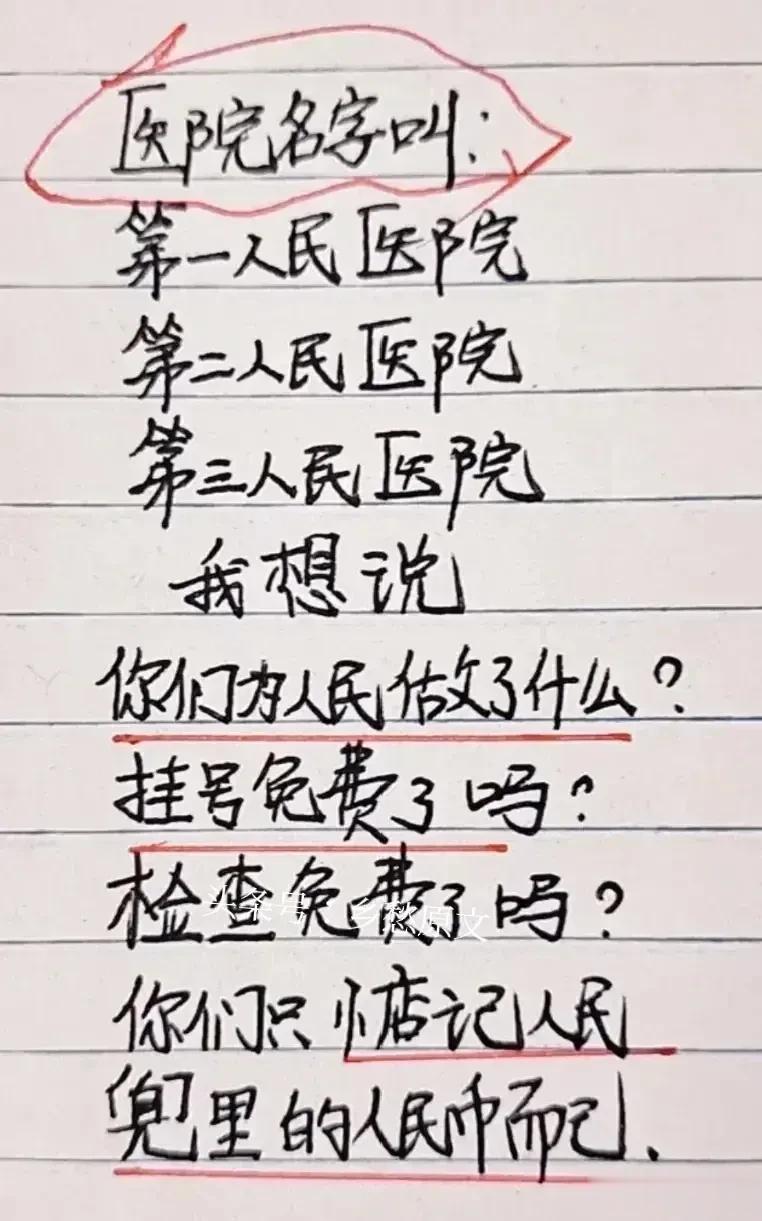 医院名字叫：
第一人民医院
第二人民医院
第三人民医院
我想说
你们为人民做了什么？
挂号免费了吗？
检查免费了吗？
头条号 乡愁原文
你们只惦记人民
兜里的人民币而已.